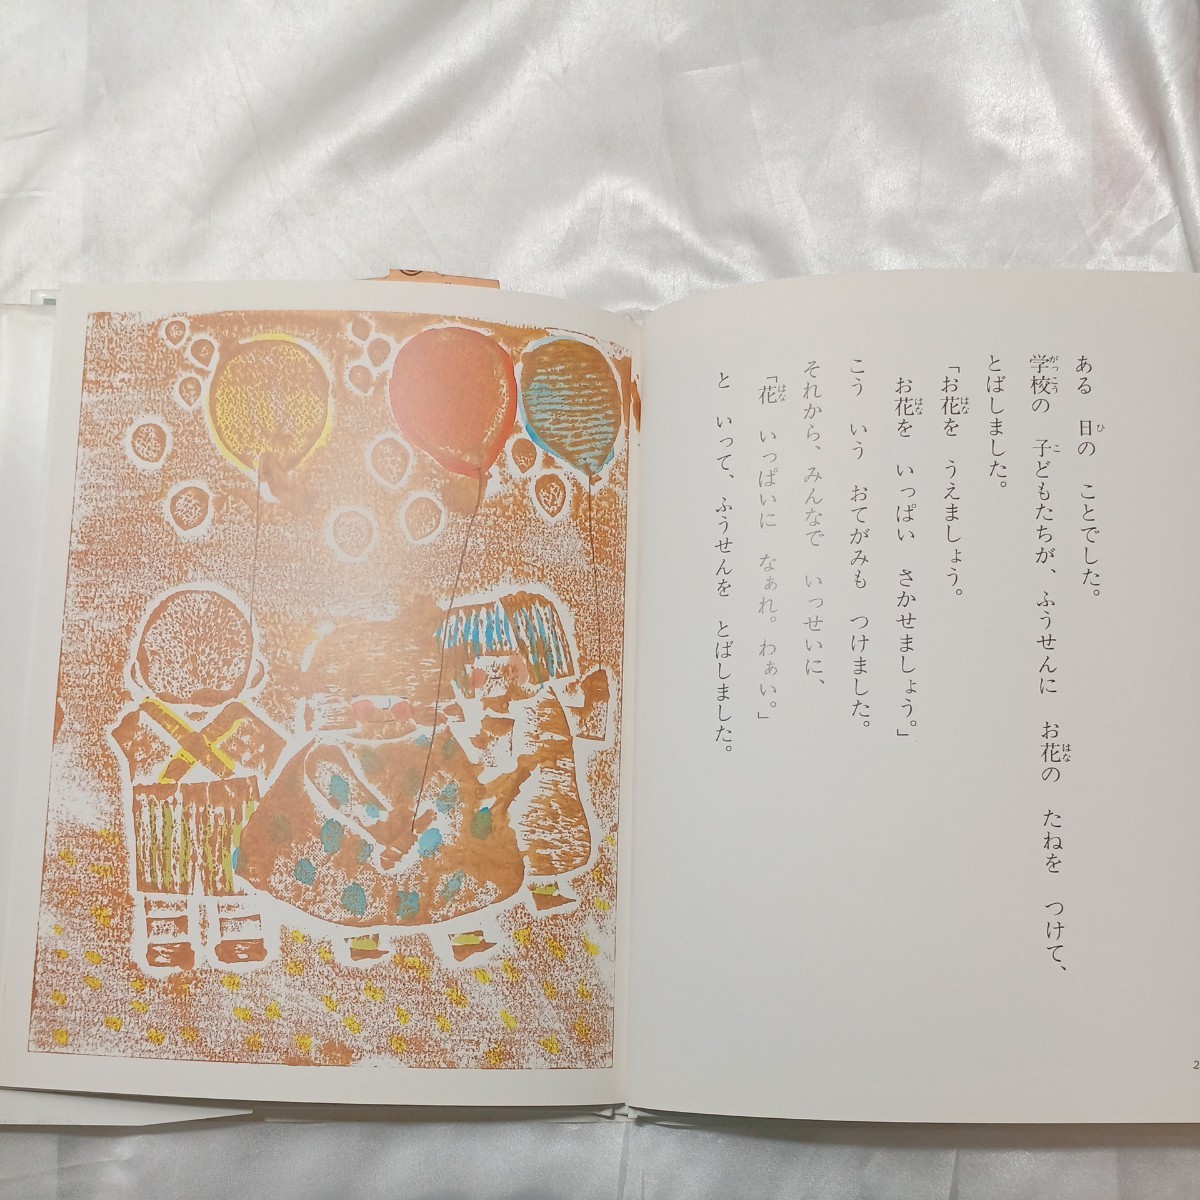 ある 日の ことでした。
学校の 子どもたちが、ふうせんに お花の たねを つけて、
とばしました。
「お花を うえましょう。
お花を いっぱい さかせましょう。」
こう いう おてがみも つけました。
それから、みんなで いっせいに、
「花 いっぱいに なぁれ。わぁい。」
と いって、ふうせんを とばしました。
2